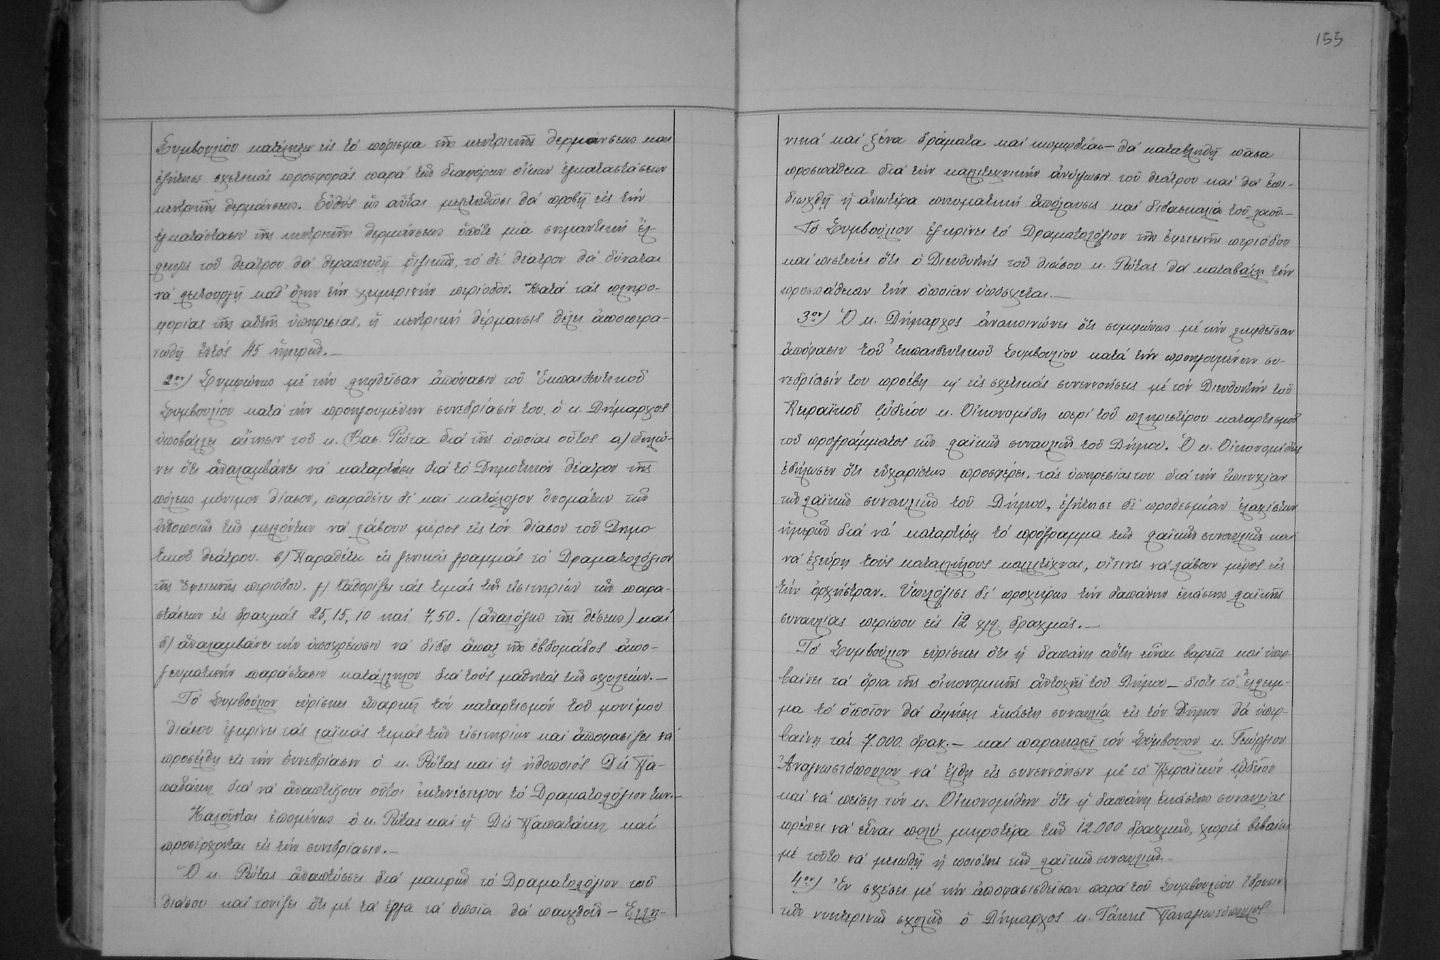 155
Συμβουλίου κατέληξεν εἰς τό πόρισμα τῆς κεντρικῆς θερμάνσεως και
ἐζήτησε σχετικάς προσφοράς παρά τῶν διαφόρων οἴκων ἐγκαταστάσεων
κεντρικῆς θερμάνσεως. Εὐθύς ὡς αὗται μελετηθῶσι θά προβῇ εἰς τήν
ἐγκατάστασιν τῆς κεντρικῆς θερμάνσεως ὁπότε μία σημαντική ἔλ-
λειψις τοῦ θεάτρου θά θεραπευθῇ ριζικῶς, τό δέ θέατρον θά δύναται
νά λειτουργῇ καθ' ὅλην τήν χειμερινήν περίοδον. Κατά τάς πληρο-
φορίας τῆς αὐτῆς ὑπηρεσίας, ἡ κεντρική θέρμανσις θέλει ἀποπερα-
τωθῇ ἐντός 45 ἡμερῶν.—
2ον) Συμφώνως μέ τήν ληφθεῖσαν ἀπόφασιν τοῦ Ἐκπαιδευτικοῦ
Συμβουλίου κατά τήν προηγουμένην συνεδρίασίν του, ὁ κ. Δήμαρχος
ὑποβάλλει αἴτησιν τοῦ κ. Βασ. Ρώτα διά τῆς ὁποίας οὗτος α) δηλώ-
νει ὅτι ἀναλαμβάνει νά καταρτίσῃ διά τό Δημοτικόν θέατρον τῆς
πόλεως μόνιμον θίασον, παραθέτει δέ και κατάλογον ὀνομάτων τῶν
ἠθοποιῶν τῶν μελλόντων νά λάβουν μέρος εἰς τόν θίασον τοῦ Δημο-
τικοῦ θεάτρου. β) Παραθέτει εἰς γενικάς γραμμάς τό Δραματολόγιον
τῆς ἐφετεινῆς περιόδου. γ) Καθορίζει τάς τιμάς τῶν εἰσιτηρίων τῶν παρα-
στάσεων εἰς δραχμάς 25, 15, 10 καί 7,50. (ἀναλόγως τῆς θέσεως) καί
δ) ἀναλαμβάνει τήν ὑποχρέωσιν νά δίδῃ ἅπαξ τῆς ἑβδομάδος ἀπο-
γευματινήν παράστασιν κατάλληλον διά τούς μαθητάς τῶν σχολείων.—
Τό Συμβούλιον εὑρίσκει ἐπαρκῆ τόν καταρτισμόν τοῦ μονίμου
θιάσου ἐγκρίνει τάς λαϊκάς τιμάς τῶν εἰσιτηρίων και ἀποφασίζει νά
προσέλθῃ εἰς τήν συνεδρίασιν ὁ κ. Ρώτας και ἡ ἠθοποιός Δίς Πα-
παδάκη διά νά ἀναπτύξουν οὗτοι ἐκτενέστερον τό Δραματολόγιόν των.—
Καλοῦνται ἑπομένως ὁ κ. Ρώτας και ἡ Δίς Παπαδάκη καί
προσέρχονται εἰς τήν συνεδρίασιν.—
Ὁ κ. Ρώτας ἀναπτύσσει διά μακρῶν τό Δραματολόγιον τοῦ
θιάσου καί τονίζει ὅτι μέ τά ἔργα τά ὁποῖα θά παιχθοῦν – Ἑλλη-
νικά καί ξένα δράματα καί κωμωδίαι – θά καταβληθῇ πᾶσα
προσπάθεια διά τήν καλλιτεχνικήν ἀνύψωσιν τοῦ θεάτρου καί θά ἐπι-
διωχθῇ ἡ ἀνωτέρα πνευματική ἀπόλαυσις καί διδασκαλία τοῦ λαοῦ.—
Τό Συμβούλιον ἐγκρίνει τό Δραματολόγιον τῆς ἐφετεινῆς περιόδου
και πιστεύει ὅτι ὁ Διευθυντής τοῦ θιάσου κ. Ρώτας θά καταβάλῃ τήν
προσπάθειαν τήν ὁποίαν ὑπόσχεται.—
3ον) Ὁ κ. Δήμαρχος ἀνακοινώνει ὅτι συμφώνως μέ τήν ληφθεῖσαν
ἀπόφασιν τοῦ Ἐκπαιδευτικοῦ Συμβουλίου κατά τήν προηγουμένην συ-
νεδρίασίν του προέβη εἰς σχετικάς συνεννοήσεις μέ τόν Διευθυντήν τοῦ
Πειραϊκοῦ ᾠδείου κ. Οἰκονομίδη περί τοῦ πληρεστέρου καταρτισμοῦ
τοῦ προγράμματος τῶν λαϊκῶν συναυλιῶν τοῦ Δήμου. Ὁ κ. Οἰκονομίδης
ἐδήλωσεν ὅτι εὐχαρίστως προσφέρει τάς ὑπηρεσίας του διά τήν ἐπιτυχίαν
τῶν λαϊκῶν συναυλιῶν τοῦ Δήμου, ἐζήτησε δέ προθεσμίαν ἐλαχίστων
ἡμερῶν διά νά καταρτίσῃ τό πρόγραμμα τῶν λαϊκῶν συναυλιῶν και
νά ἐξεύρῃ τούς καταλλήλους καλλιτέχνας, οἵτινες νά λάβουν μέρος εἰς
τήν ὀρχήστραν. Ὑπελόγισε δέ προχείρως τήν δαπάνην ἑκάστης λαϊκῆς
συναυλίας περίπου εἰς 12 χιλ. δραχμάς.—
Τό Συμβούλιον εὑρίσκει ὅτι ἡ δαπάνη αὕτη εἶναι βαρεῖα καί ὑπερ-
βαίνει τά ὅρια τῆς οἰκονομικῆς ἀντοχῆς τοῦ Δήμου – διότι τό ἔλλειμ-
μα τό ὁποῖον θά ἀφήσῃ ἑκάστη συναυλία εἰς τόν Δῆμον θά ὑπερ-
βαίνῃ τάς 7.000 δραχ.– και παρακαλεῖ τόν Σύμβουλον κ. Γεώργιον
Ἀναγνωστόπουλον νά ἔλθῃ εἰς συνεννόησιν μέ τό Πειραϊκόν ᾠδεῖον
και νά πείσῃ τόν κ. Οἰκονομίδην ὅτι ἡ δαπάνη ἑκάστης συναυλίας
πρέπει νά εἶναι πολύ μικροτέρα τῶν 12.000 δραχμῶν, χωρίς βεβαίως
μέ τοῦτο νά μειωθῇ ἡ ποιότης τῶν λαϊκῶν συναυλιῶν.—
4ον) Ἐν σχέσει μέ τήν ἀποφασισθεῖσαν παρά τοῦ Συμβουλίου ἵδρυσιν
τῶν νυκτερινῶν σχολῶν ὁ Δήμαρχος κ. Τάκης Παναγιωτόπουλος